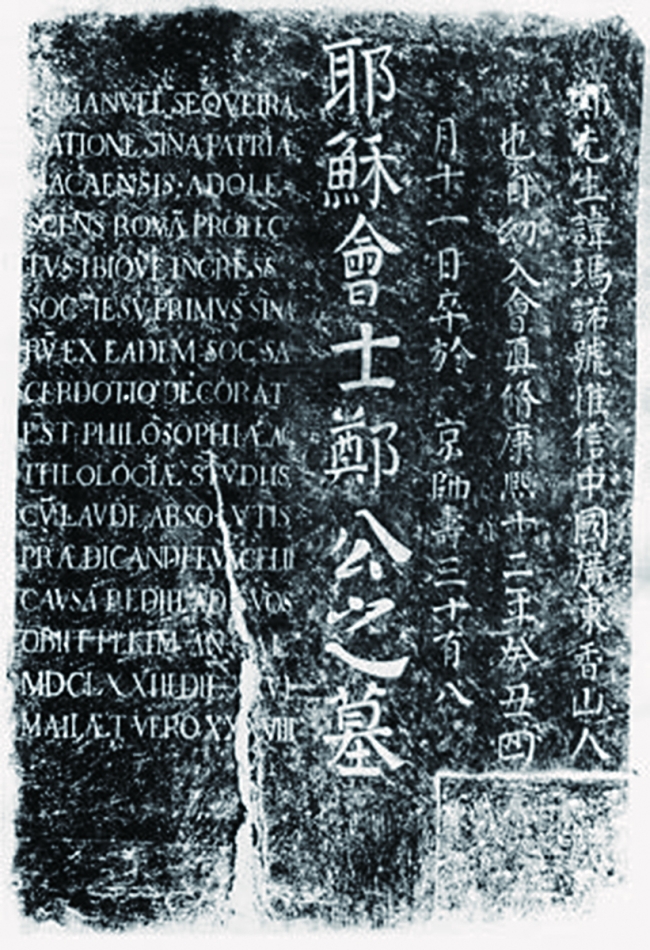 鄭先生諱瑪諾號惟信中國廣東香山人
也自幼入會真脩康熙十二年癸丑四
月十一日卒於 京師壽三十有八
耶穌會士鄭公之墓
EMANVEL SEQVEIRA
NATIONE SINA PATRIA
MACAENSIS·ADOLE
SCENS ROMÃ PROFEC
TVS IBIQVE INGRESS
SOC IESV PRIMVS SINA
RV EX EADEM SOC SA
CERDOTIO DECORAT
EST PHILOSOPHIÆ AC
THEOLOGIÆ STVDIIS
CV LAVDE ABSOLVTIS
PRÆDICANDI EVAGELII
CAVSA REDIIT AD SVOS
OBIIT PEKIM AN
MDCLXXIII DIE
MAII ÆT VERO XXXVIII